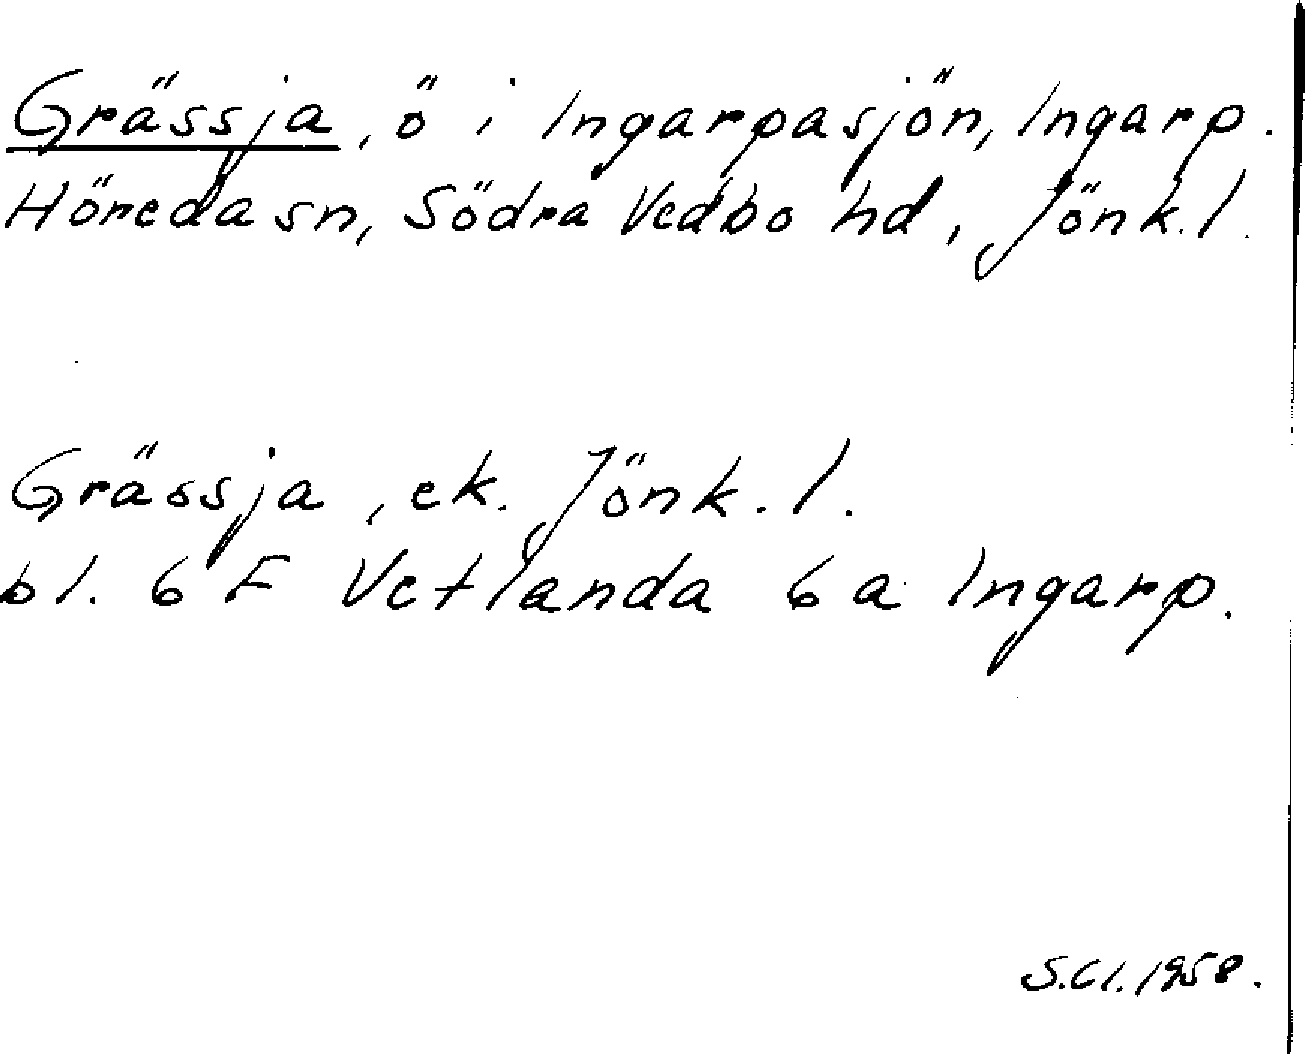 Grässja, ö i Ingarpasjön, Ingarp.
Höreda sn, Södra Vedbo hd, Jönk.l.
Grässja, ek. Jönk.l.
bl. 6 F Vetlanda 6 a Ingarp.
S.Cl. 1958.